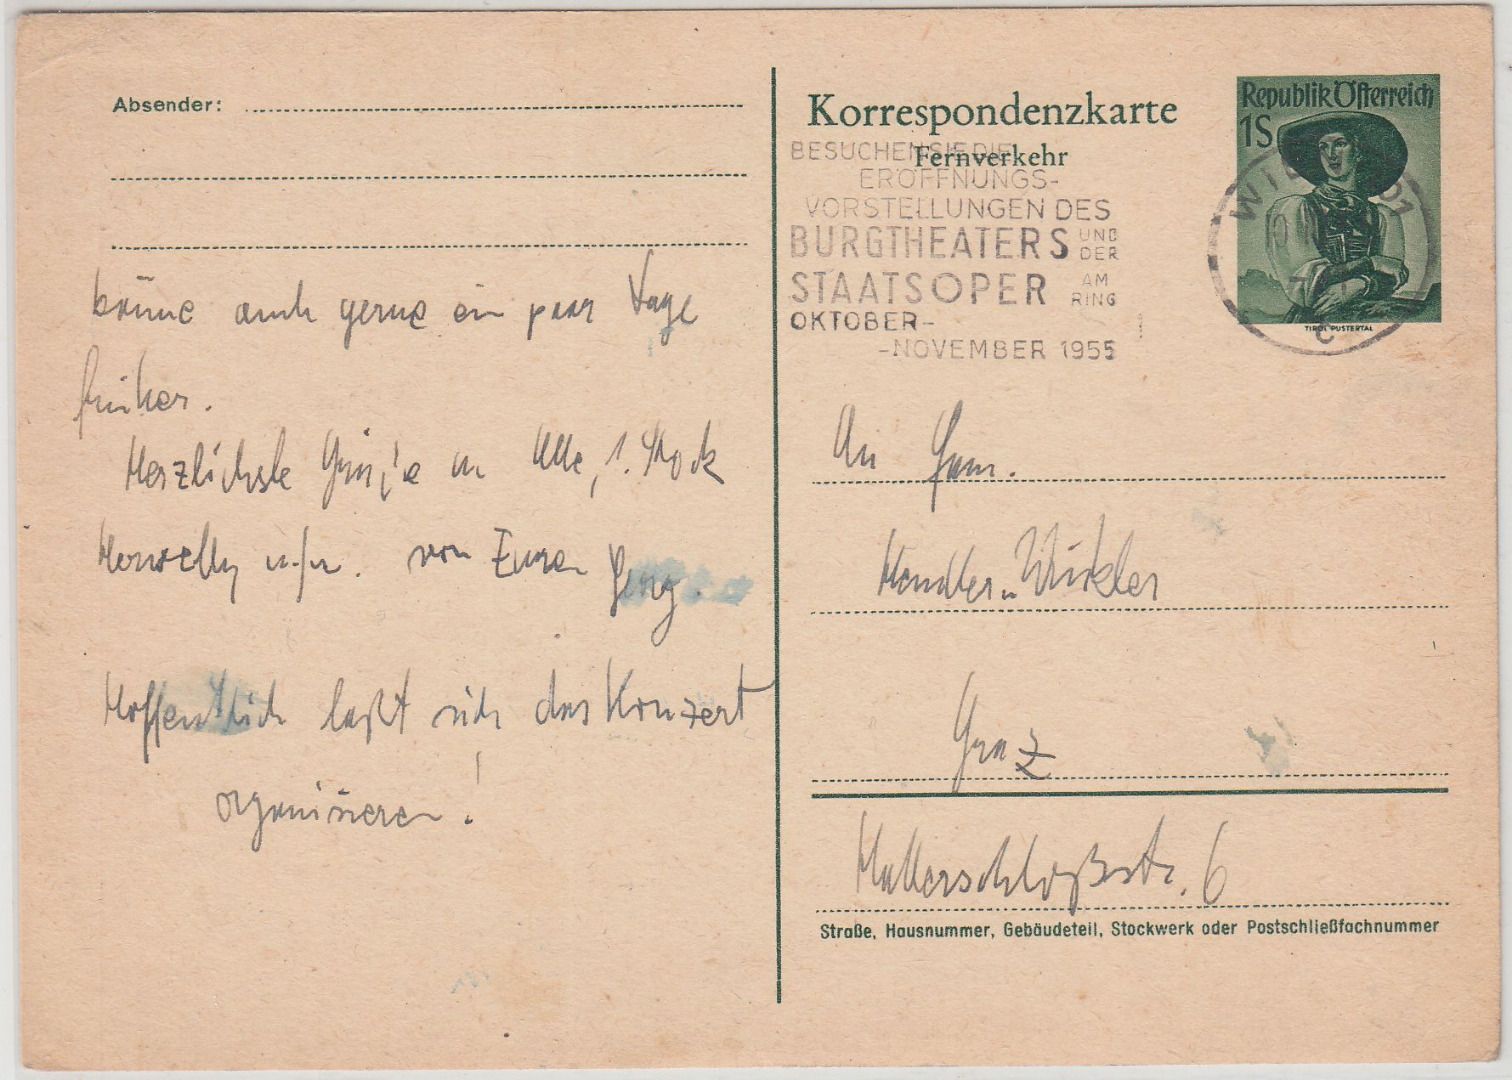 Absender:
käme auch gerne ein paar Tage
früher.
Herzlichste Grüße an Alle, 1. Stock
von Euren Georg.
Hoffentlich läßt sich das Konzert
organisieren!
Korrespondenzkarte
Fernverkehr
BESUCHEN SIE DIE
ERÖFFNUNGS-
VORSTELLUNGEN DES
BURGTHEATERS UND DER
STAATSOPER AM RING
OKTOBER-
-NOVEMBER 1955
Republik Österreich
1S
TIROL PUSTERTAL
WIEN
10
C
An Fam.
Winkler
Graz
Hallerschloßstr. 6
Straße, Hausnummer, Gebäudeteil, Stockwerk oder Postschließfachnummer